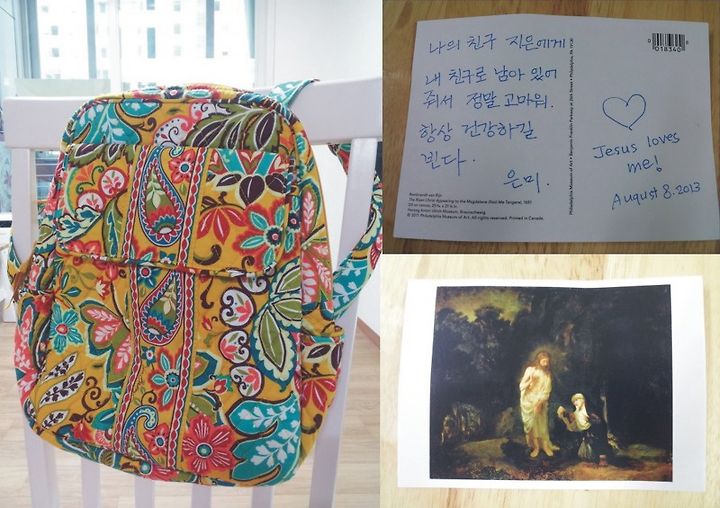 나의 친구 지은에게
내 친구로 남아 있어
줘서 정말 고마워.
항상 건강하길
빈다.
은미.
Rembrandt van Rijn
The Risen Christ Appearing to the Magdalene (Noli Me Tangere), 1651
Oil on canvas, 25⅝ x 31⅛ in.
Herzog Anton Ulrich Museum, Braunschweig
© 2011 Philadelphia Museum of Art. All rights reserved. Printed in Canada.
Philadelphia Museum of Art • Benjamin Franklin Parkway at 26th Street • Philadelphia, PA 19130
0 018340 8
Jesus loves
me!
August 8. 2013